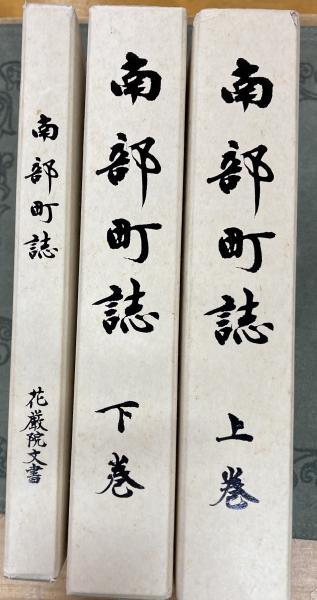 南部町誌 上巻
南部町誌 下巻
南部町誌 花厳院文書